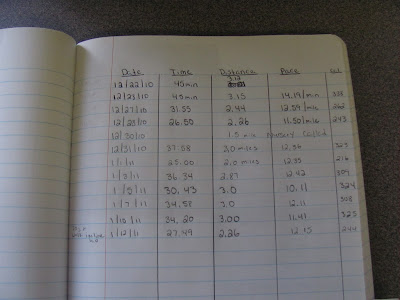 Date Time Distance Pace Cal
3.12
12/22/10 45min
12/23/10 45min 3.15 14.19/min 338
12/27/10 31.55 2.44 12.59/mile 262
12/28/10 26.50 2.26 11.50/mile 243
12/30/10 1.5 mile
12/31/10 37.58 3.0 miles 12.34 323
1/1/11 25.00 2.0 miles 12.35 216
1/3/11 36.34 2.87 12.42
1/5/11 30.43 3.0 10.11 324
1/7/11 34.58 3.0 12.11 308
1/10/11 34.20 3.00 11.41 325
1/12/11 27.49 2.26 12.15 244